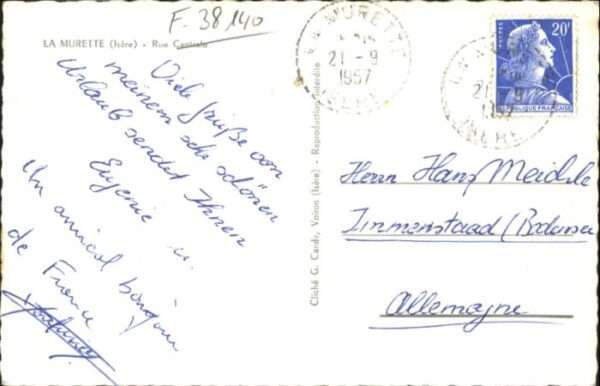 F. 38140
LA MURETTE (Isère) - Rue Centrale
Viele Grüße von
meinem sehr schönen
Urlaub sendet Ihnen
Eugenie u.
Un amical bonjour
de France
Cliché G. Cardy, Voiron (Isère) - Reproduction interdite
LA MURETTE
21-9
1957
ISERE
20F
POSTES
REPUBLIQUE FRANÇAISE
LA MURETTE
21-9
1957
ISERE
Herrn Hans Meichle
Immenstaad/Bodensee
Allemagne